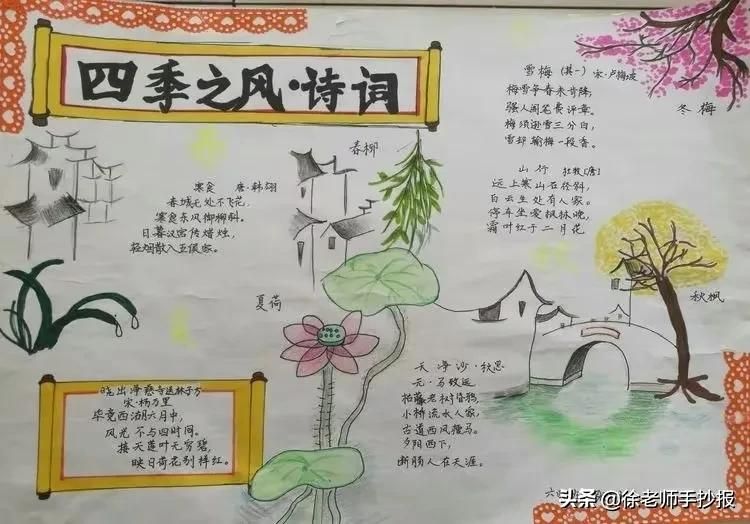 四季之风·诗词
春柳
寒食 唐·韩翃
春城无处不飞花,
寒食东风御柳斜。
日暮汉宫传蜡烛,
轻烟散入五侯家。
雪梅(其一) 宋·卢梅坡
梅雪争春未肯降,
骚人阁笔费评章。
梅须逊雪三分白,
雪却输梅一段香。
冬梅
山行 杜牧[唐]
远上寒山石径斜,
白云生处有人家。
停车坐爱枫林晚,
霜叶红于二月花
秋枫
夏荷
晓出净慈寺送林子方
宋·杨万里
毕竟西湖六月中,
风光不与四时同。
接天莲叶无穷碧,
映日荷花别样红。
天净沙·秋思
元·马致远
枯藤老树昏鸦,
小桥流水人家,
古道西风瘦马。
夕阳西下,
断肠人在天涯。
头条@徐老师手抄报